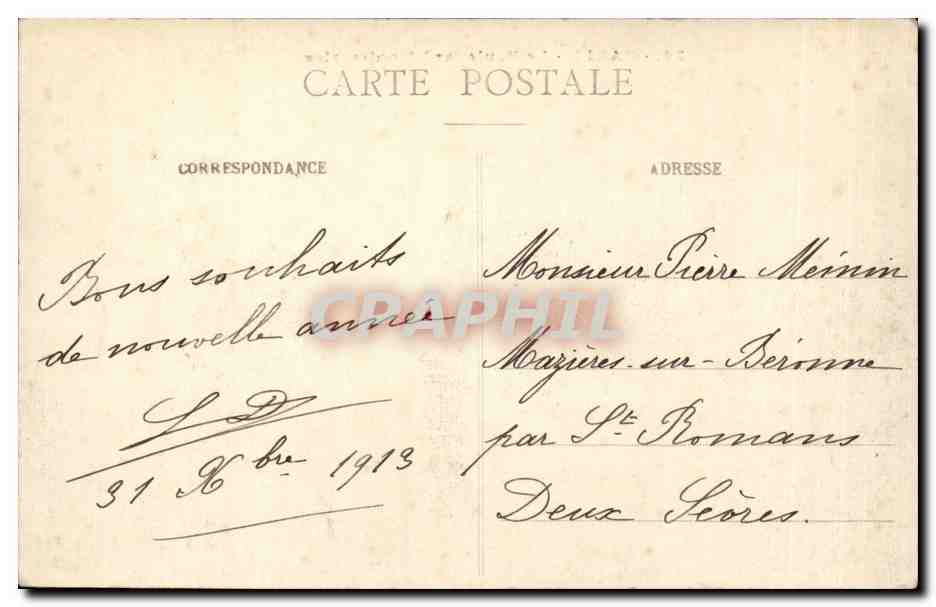 CARTE POSTALE
CORRESPONDANCE
Bons souhaits
de nouvelle année
31 Xbre 1913
ADRESSE
Monsieur Pierre Meinin
Mazières-sur-Béronne
par St Romans
Deux Sèvres.
CPAPHIL